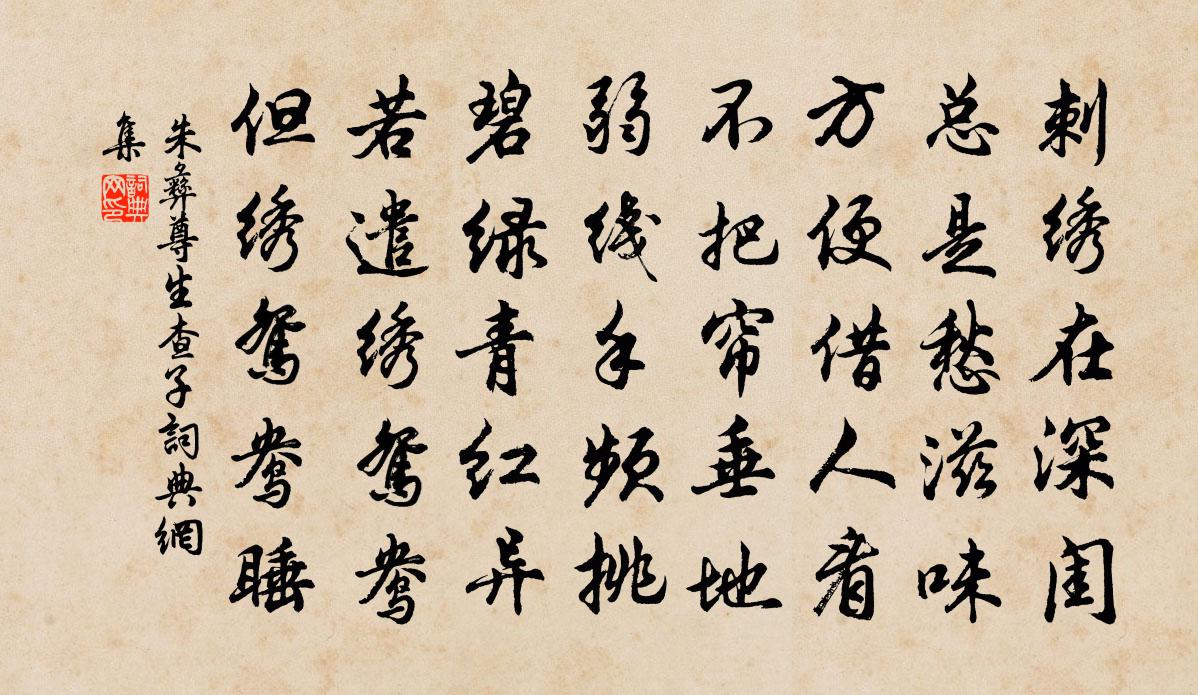 刺绣在深闺
总是愁滋味
方便借人看
不把帘垂地
弱线手频挑
碧绿青红异
若遣绣鸳鸯
但绣鸳鸯睡
朱彝尊生查子詞典網
集
詞典
网印